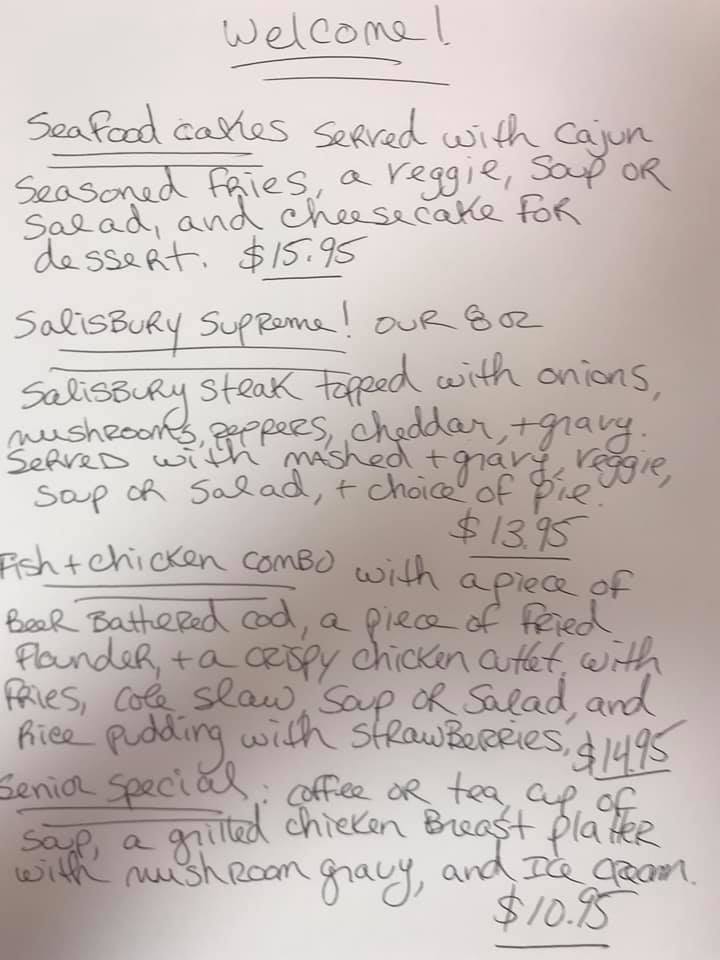 Welcome!
Seafood cakes served with Cajun
Seasoned fries, a veggie, soup or
salad, and cheesecake for
dessert. $15.95
Salisbury Supreme! our 8 oz
Salisbury steak topped with onions,
mushrooms, peppers, cheddar, + gravy.
Served with mashed + gravy, veggie,
soup or salad, + choice of pie.
$13.95
Fish + chicken combo with a piece of
Beer Battered cod, a piece of fried
flounder, + a crispy chicken cutlet, with
fries, cole slaw, soup or salad, and
rice pudding with strawberries. $14.95
Senior Special: coffee or tea, cup of
soup, a grilled chicken Breast platter
with mushroom gravy, and Ice cream.
$10.95